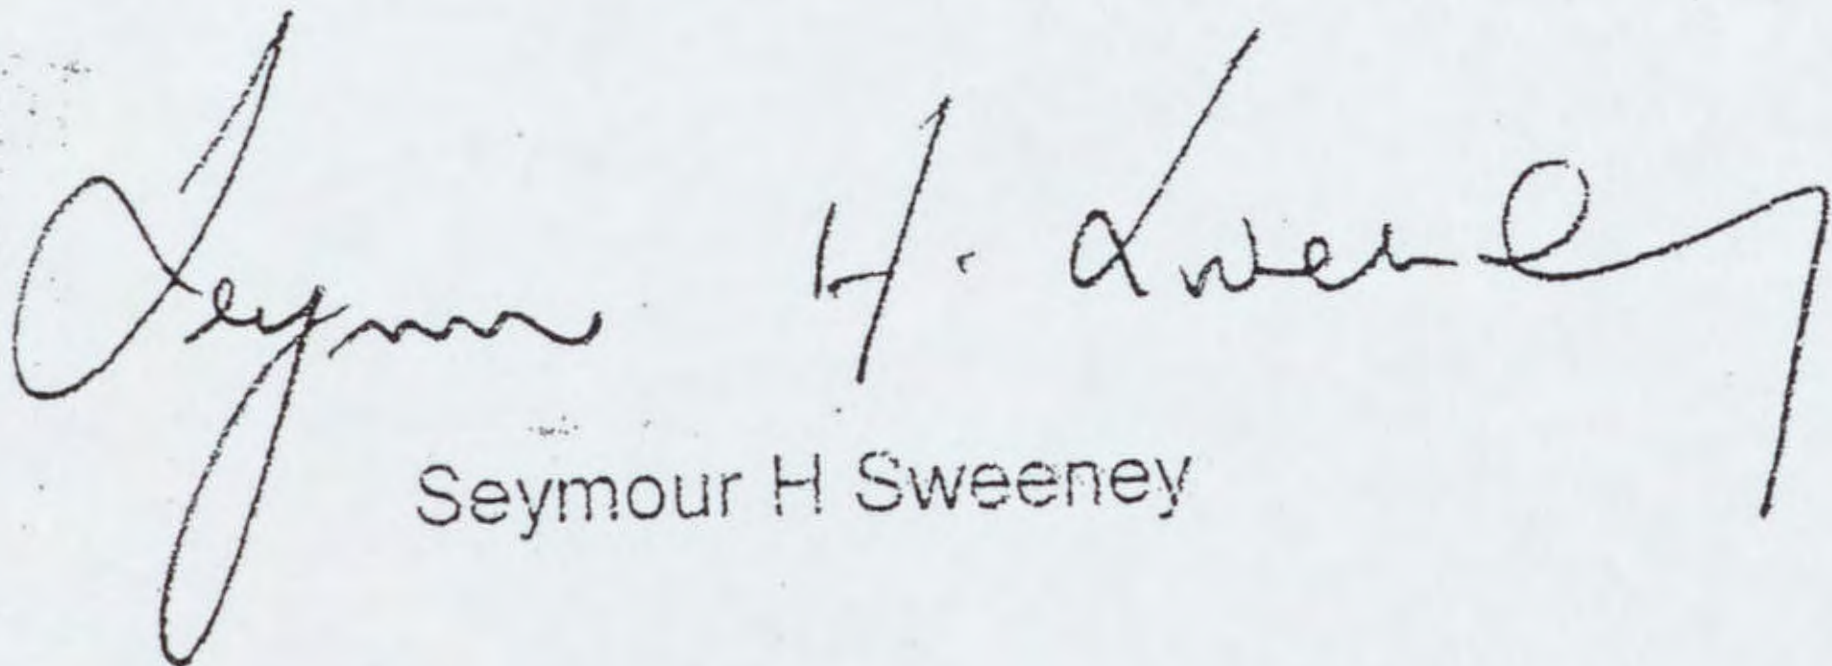 Seymour H. Sweeney
Seymour H Sweeney